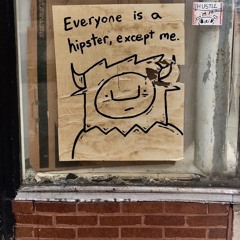 Everyone is a
hipster, except me.
HUSTLE